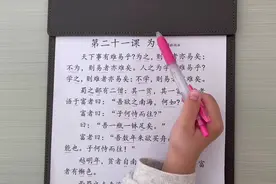 第二十一课 为
天下事有难易乎?为之,则难者亦易矣;
不为,则易者亦难矣。人之为学
学之,则难者亦易矣;不学,则易
蜀之鄙有二僧:其一贫,其一
语于富者曰:“吾欲之南海,何如?
富者曰:“子何恃而往?”
曰:“吾一瓶一钵足矣。”
富者曰:“吾数年来欲买舟
能也。子何恃而往!”
越明年,贫者自南
者有惭色。